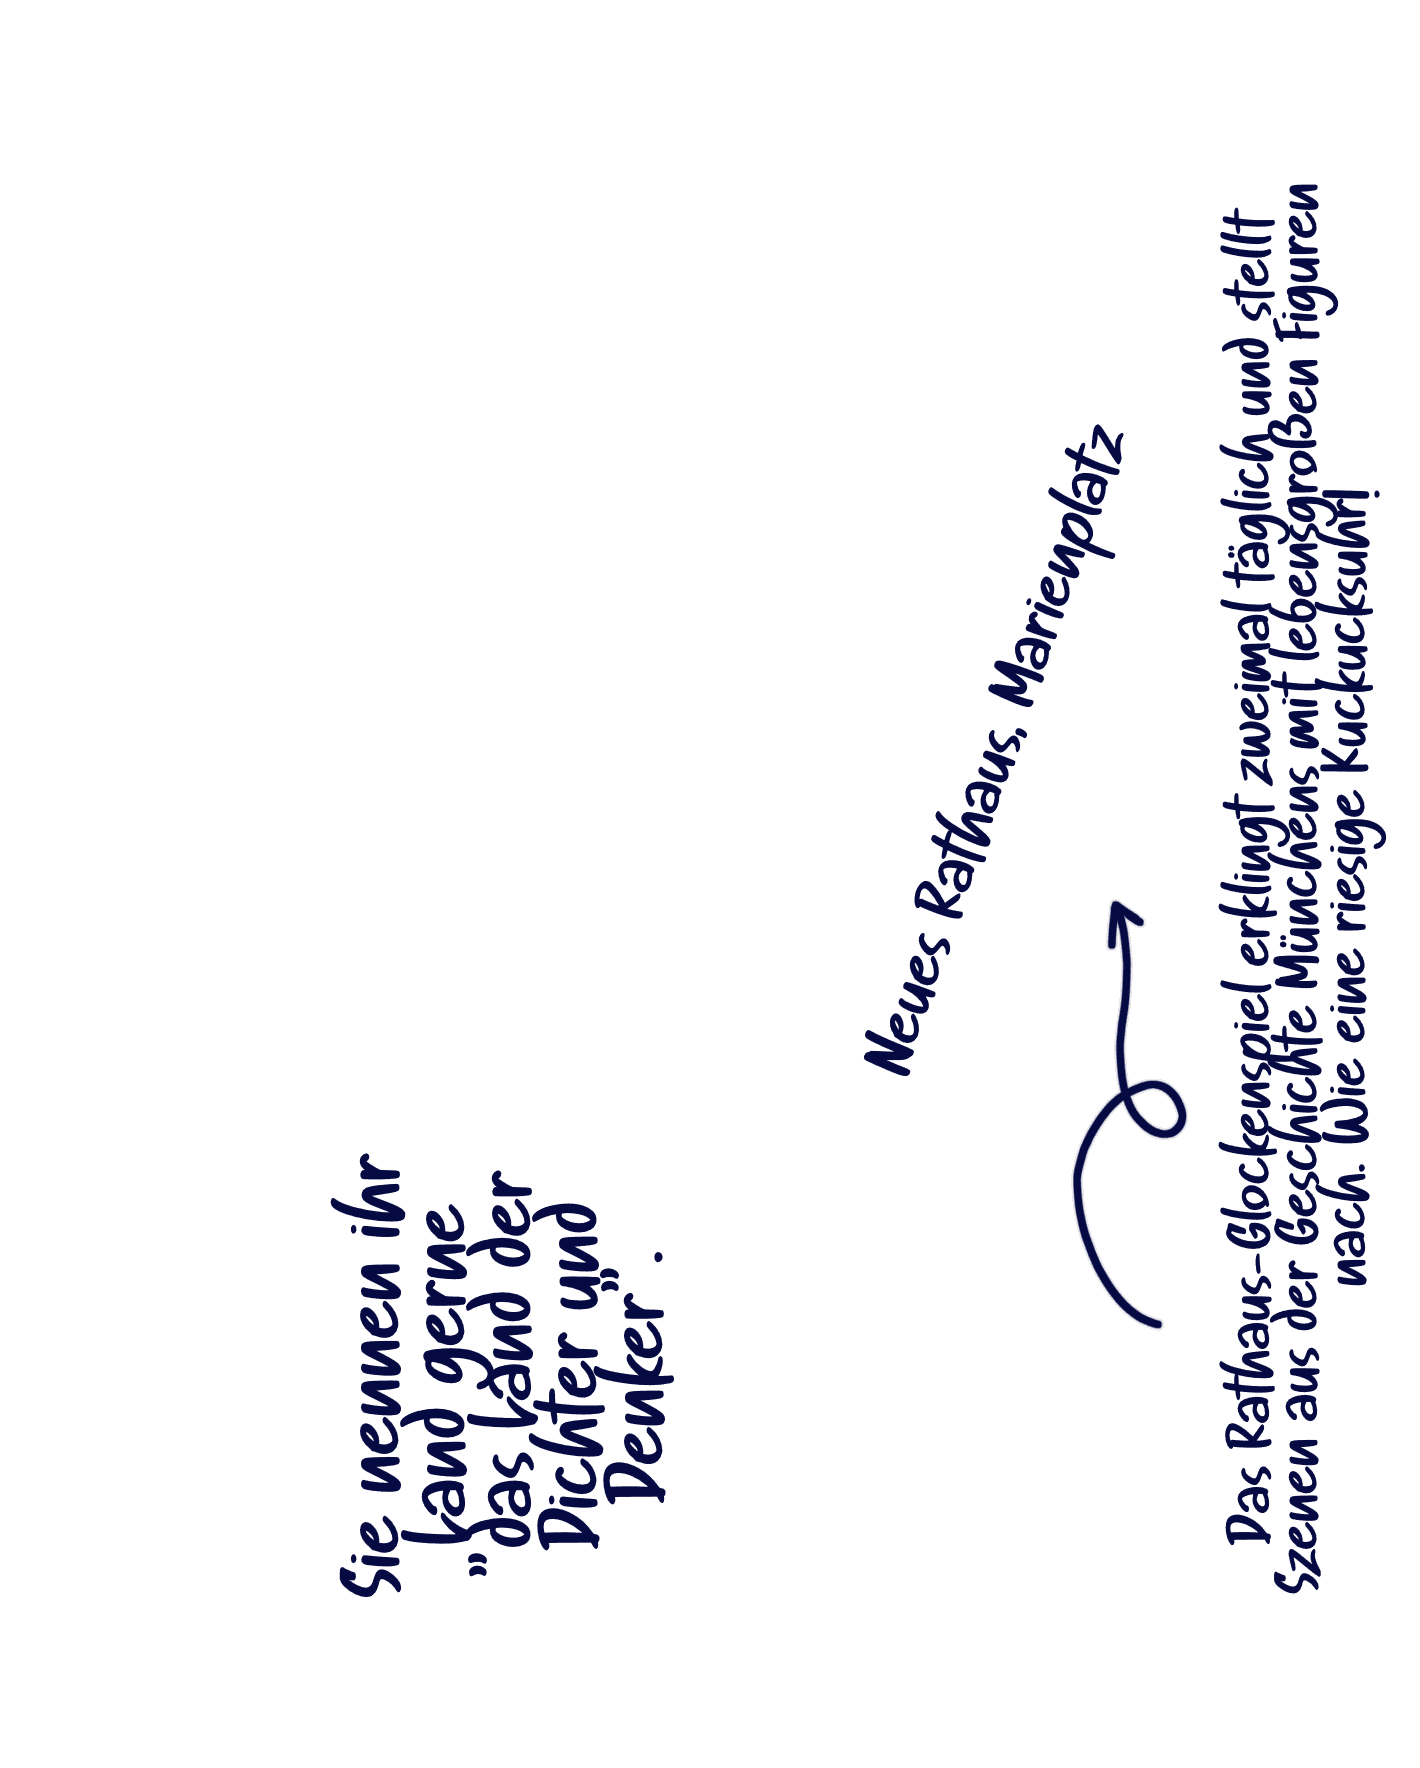 Sie nennen ihr
Land gerne
"das Land der
Dichter und
Denker".
Neues Rathaus, Marienplatz
Das Rathaus-Glockenspiel erklingt zweimal täglich und stellt
Szenen aus der Geschichte Münchens mit lebensgroßen Figuren
nach. Wie eine riesige Kuckucksuhr!